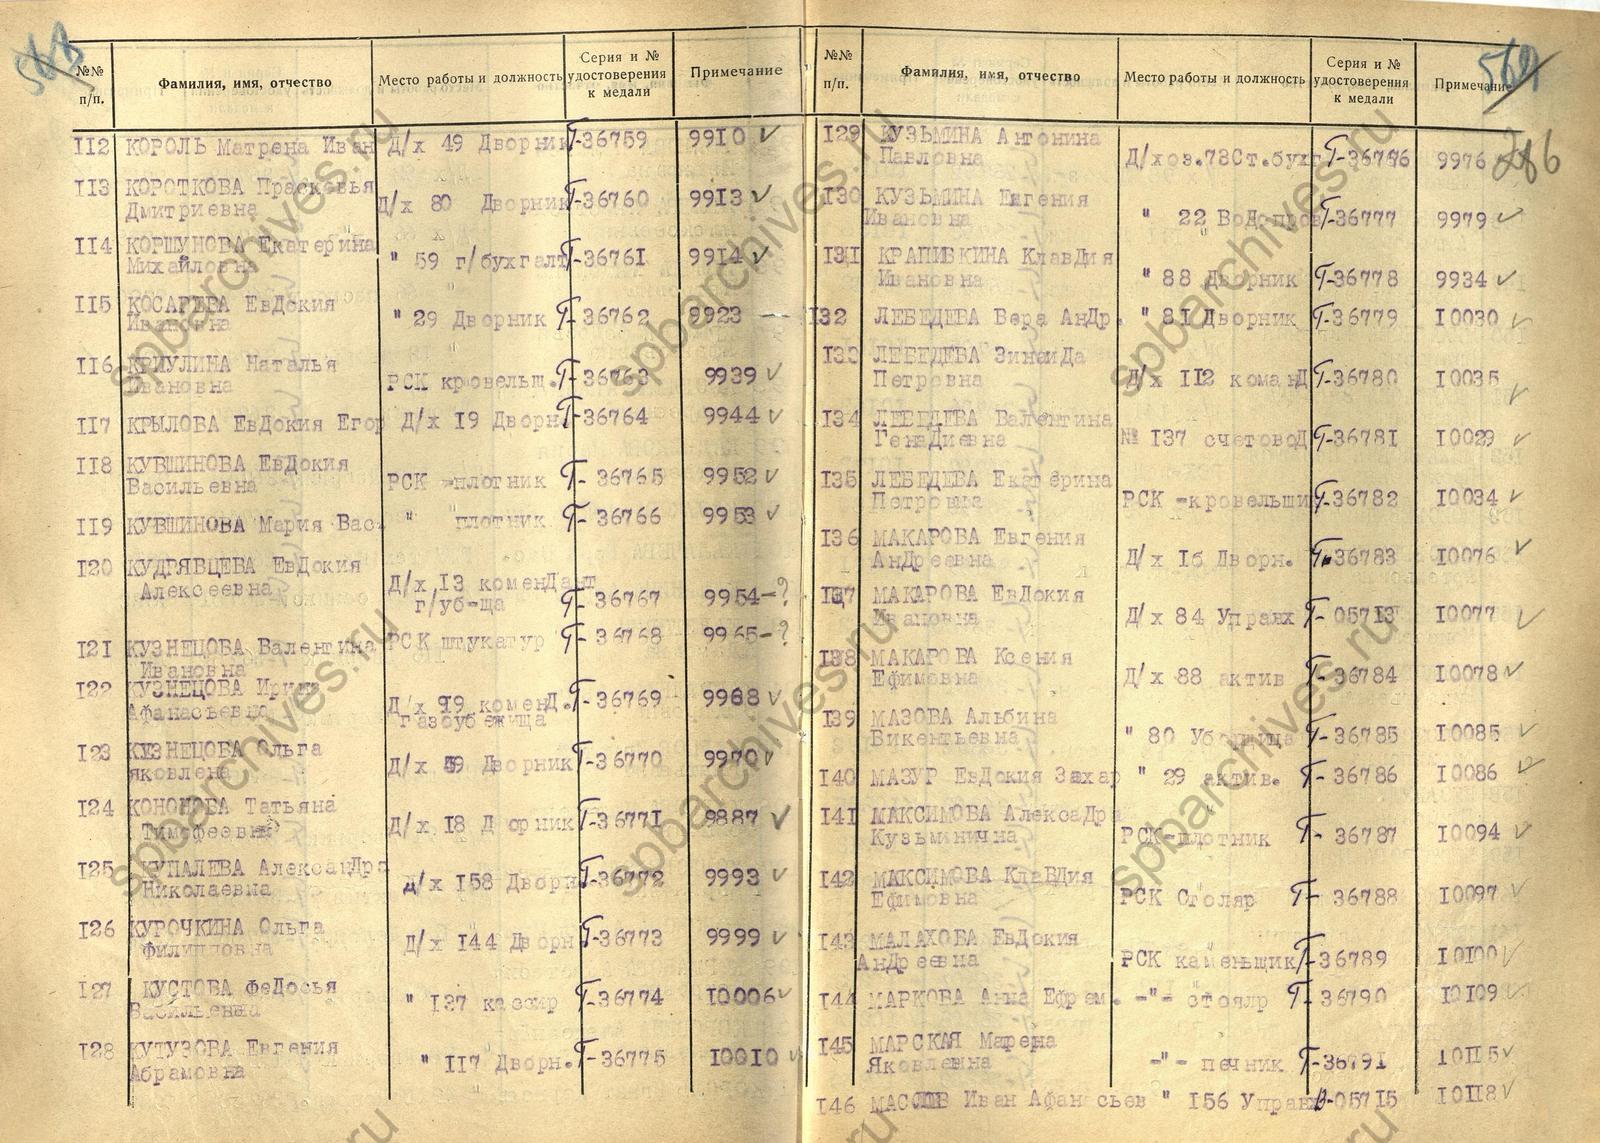 №№ п/п. Фамилия, имя, отчество Место работы и должность Серия и № удостоверения к медали Примечание
112 КОРОЛЬ Матрена Иван Д/х 49 Дворник Т-36759 9910 ✓
113 КОРОТКОВА Прасковья Д/х 80 Дворник Т-36760 9913 ✓
Дмитриевна
114 КОРШУНОВА Екатерина " 59 г/бухгалт Т-36761 9914 ✓
Михайловна
115 КОСАРЕВА ЕвДокия " 29 Дворник Т-36762 9923 —
Ивановна
116 КРИУЛИНА Наталья
Ивановна РСК кровельщ. Т-36763 9939 ✓
117 КРЫЛОВА ЕвДокия Егор Д/х 19 Дворн. Т-36764 9944 ✓
118 КУВШИНОВА ЕвДокия
Васильевна РСК -плотник Т-36765 9952 ✓
119 КУВШИНОВА Мария Вас. " плотник Т-36766 9953 ✓
120 КУДРЯВЦЕВА ЕвДокия
Алексеевна Д/х 13 коменДант
г/уб-ща Т-36767 9954 -?
121 КУЗНЕЦОВА Валентина РСК штукатур Т-36768 9965 -?
Ивановна
122 КУЗНЕЦОВА Ирина
Афанасьевна Д/х 19 коменД. Т-36769 9968 ✓
газоубежища
123 КУЗНЕЦОВА Ольга
Яковлена Д/х 59 Дворник Т-36770 9970 ✓
124 КОНОНОВА Татьяна
Тимофеевна Д/х 18 Дворник Т-36771 9887 ✓
125 КУПАЛЕВА АлексанДра
Николаевна Д/х 158 Дворн Т-36772 9993 ✓
126 КУРОЧКИНА Ольга
Филипповна Д/х 144 Дворн Т-36773 9999 ✓
127 КУСТОВА ФеДосья
Васильевна " 137 кассир Т-36774 10006 ✓
128 КУТУЗОВА Евгения
Абрамовна " 117 Дворн. Т-36775 10010 ✓
569
286
№№ п/п. Фамилия, имя, отчество Место работы и должность Серия и № удостоверения к медали Примечание
129 КУЗЬМИНА Антонина
Павловна Д/хоз.78Ст.бухг Т-36776 9976
130 КУЗЬМИНА Евгения
Ивановна " 22 ВоДопров Т-36777 9979 ✓
131 КРАПИВКИНА КлавДия
Ивановна " 88 Дворник Т-36778 9934 ✓
132 ЛЕБЕДЕВА Вера АнДр. " 81 Дворник Т-36779 10030 ✓
133 ЛЕБЕДЕВА ЗинаиДа
Петровна Д/х 112 команД Т-36780 10035 ✓
134 ЛЕБЕДЕВА Валентина
ГенаДиевна № 137 счетовоД Т-36781 10029 ✓
135 ЛЕБЕДЕВА Екатерина
Петровна РСК -кровельщи Т-36782 10034 ✓
136 МАКАРОВА Евгения
АнДреевна Д/х 16 Дворн. Т-36783 10076 ✓
137 МАКАРОВА ЕвДокия
Ивановна Д/х 84 Управх Т-05713 10077 ✓
138 МАКАРОВА Ксения
Ефимовна Д/х 88 актив Т-36784 10078 ✓
139 МАЗОВА Альбина
Викентьевна " 80 Уборщица Т-36785 10085 ✓
140 МАЗУР ЕвДокия Захар " 29 актив. Т-36786 10086 ✓
141 МАКСИМОВА АлексаДра
Кузьминична РСК-плотник Т-36787 10094 ✓
142 МАКСИМОВА КлаВДия
Ефимовна РСК Столяр Т-36788 10097 ✓
143 МАЛАХОВА ЕвДокия
АнДреевна РСК каменьщик Т-36789 10100 ✓
144 МАРКОВА Анна Ефрем. -"- стоялр Т-36790 10109 ✓
145 МАРСКАЯ Марена
Яковлевна -"- печник Т-36791 10115 ✓
146 Иван Афанасьев " 156 Управх В-05715 10118 ✓
spbarchives.ru
spbarchives.ru
spbarchives.ru
spbarchives.ru
spbarchives.ru
spbarchives.ru